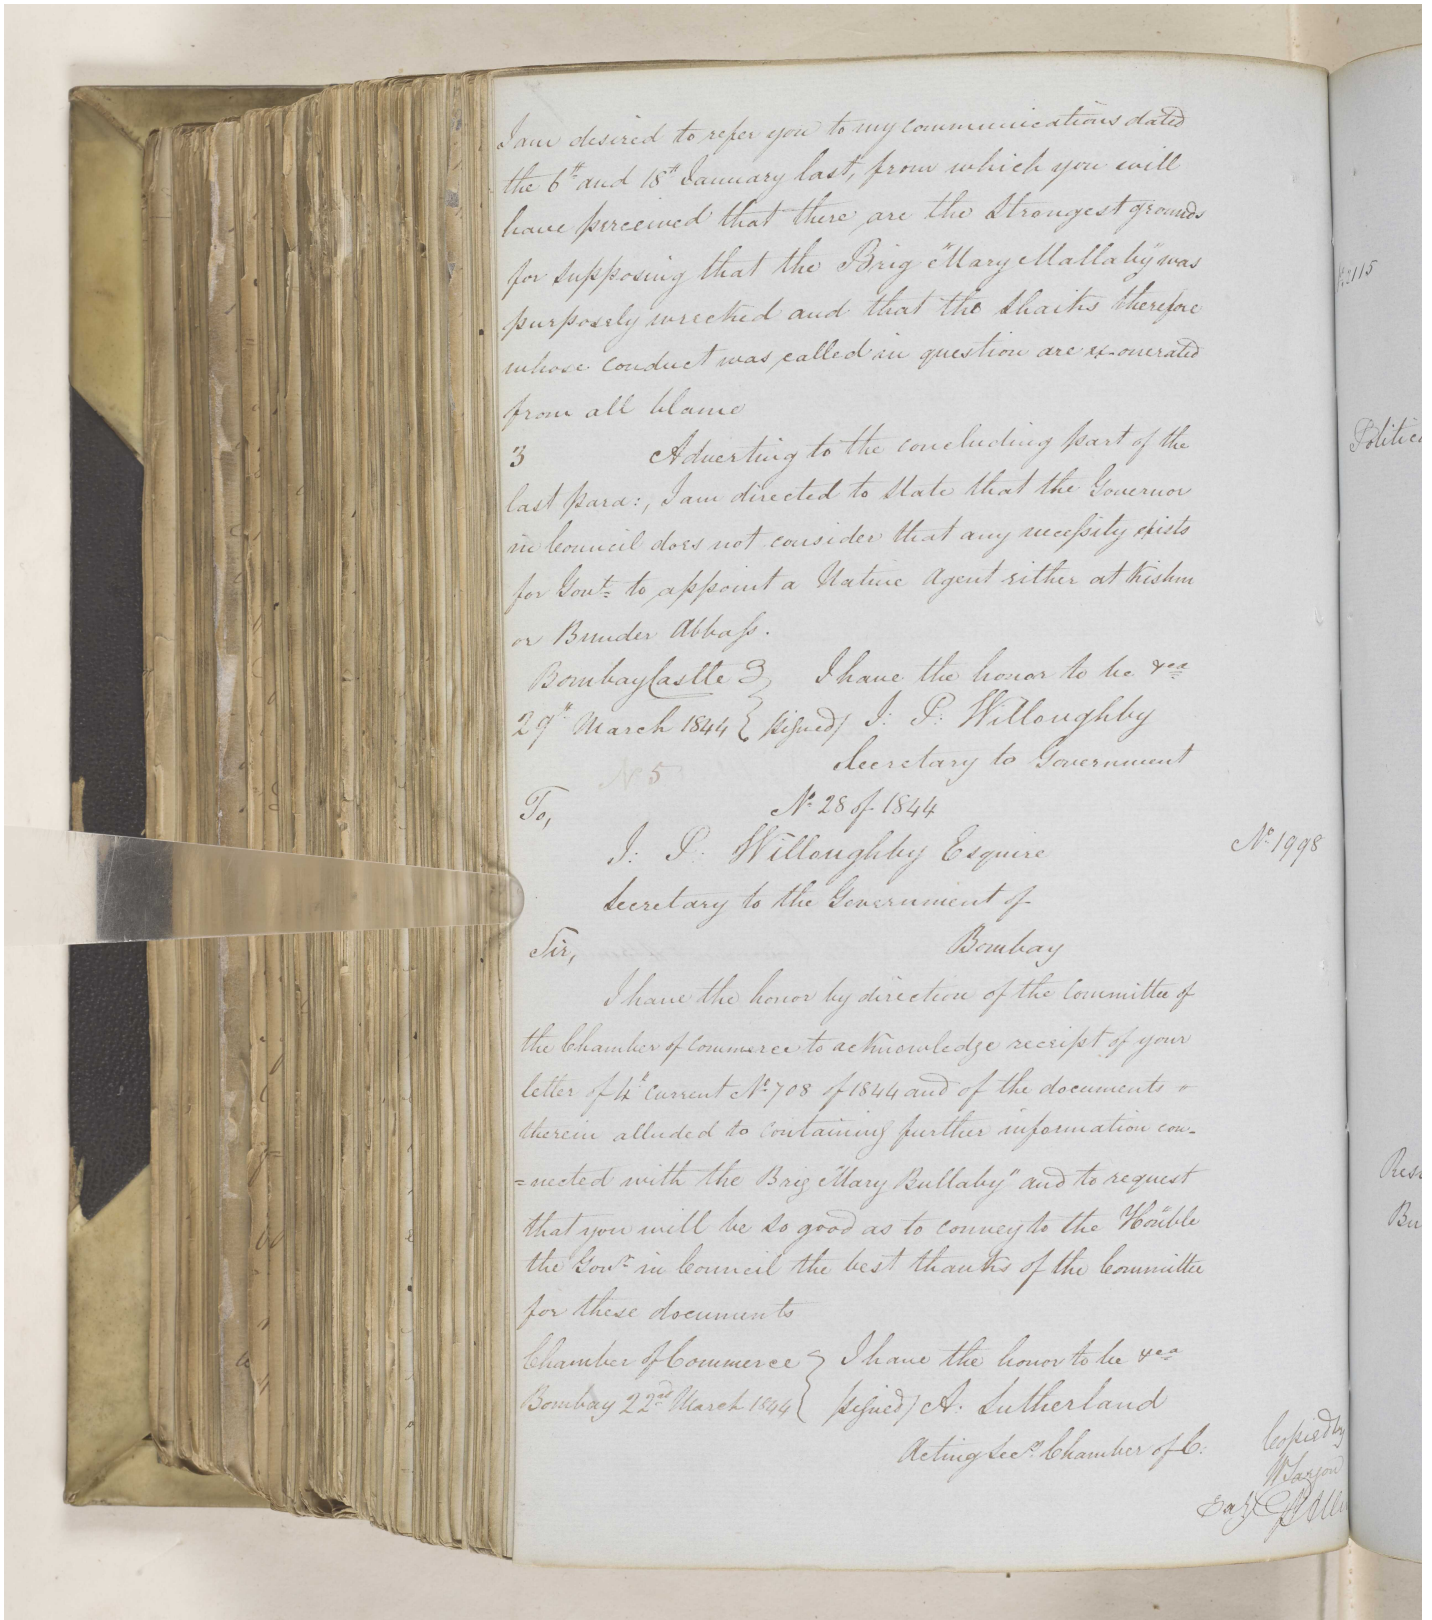 I am desired to refer you to my communications dated
the 6th and 18th January last, from which you will
have perceived that there are the strongest grounds
for supposing that the Brig "Mary Mallaby" was
purposely wrecked and that the Shaiks therefore
whose conduct was called in question are ex-onerated
from all blame
3 Adverting to the concluding part of the
last para:, I am directed to state that the Governor
in Council does not consider that any necessity exists
for Govt. to appoint a Native Agent either at Kishm
or Bunder Abbass.
Bombay Castle } I have the honor to be &ca
29th March 1844 } signed/ J: P: Willoughby
Secretary to Government
No 5
To, No. 28 of 1844
J: P: Willoughby Esquire No. 1998
Secretary to the Government of
Sir, Bombay
I have the honor by direction of the Committee of
the Chamber of Commerce to acknowledge receipt of your
letter of 4th Current No. 708 of 1844 and of the documents
therein alluded to containing further information con-
=nected with the Brig "Mary Bullaby" and to request
that you will be so good as to convey to the Honble
the Govr. in Council the best thanks of the Committee
for these documents
Chamber of Commerce } I have the honor to be &ca
Bombay 22nd March 1844 } signed/ A. Sutherland
Acting Secy. Chamber of C:
Copied by
2115
Politic
Resi
Bu